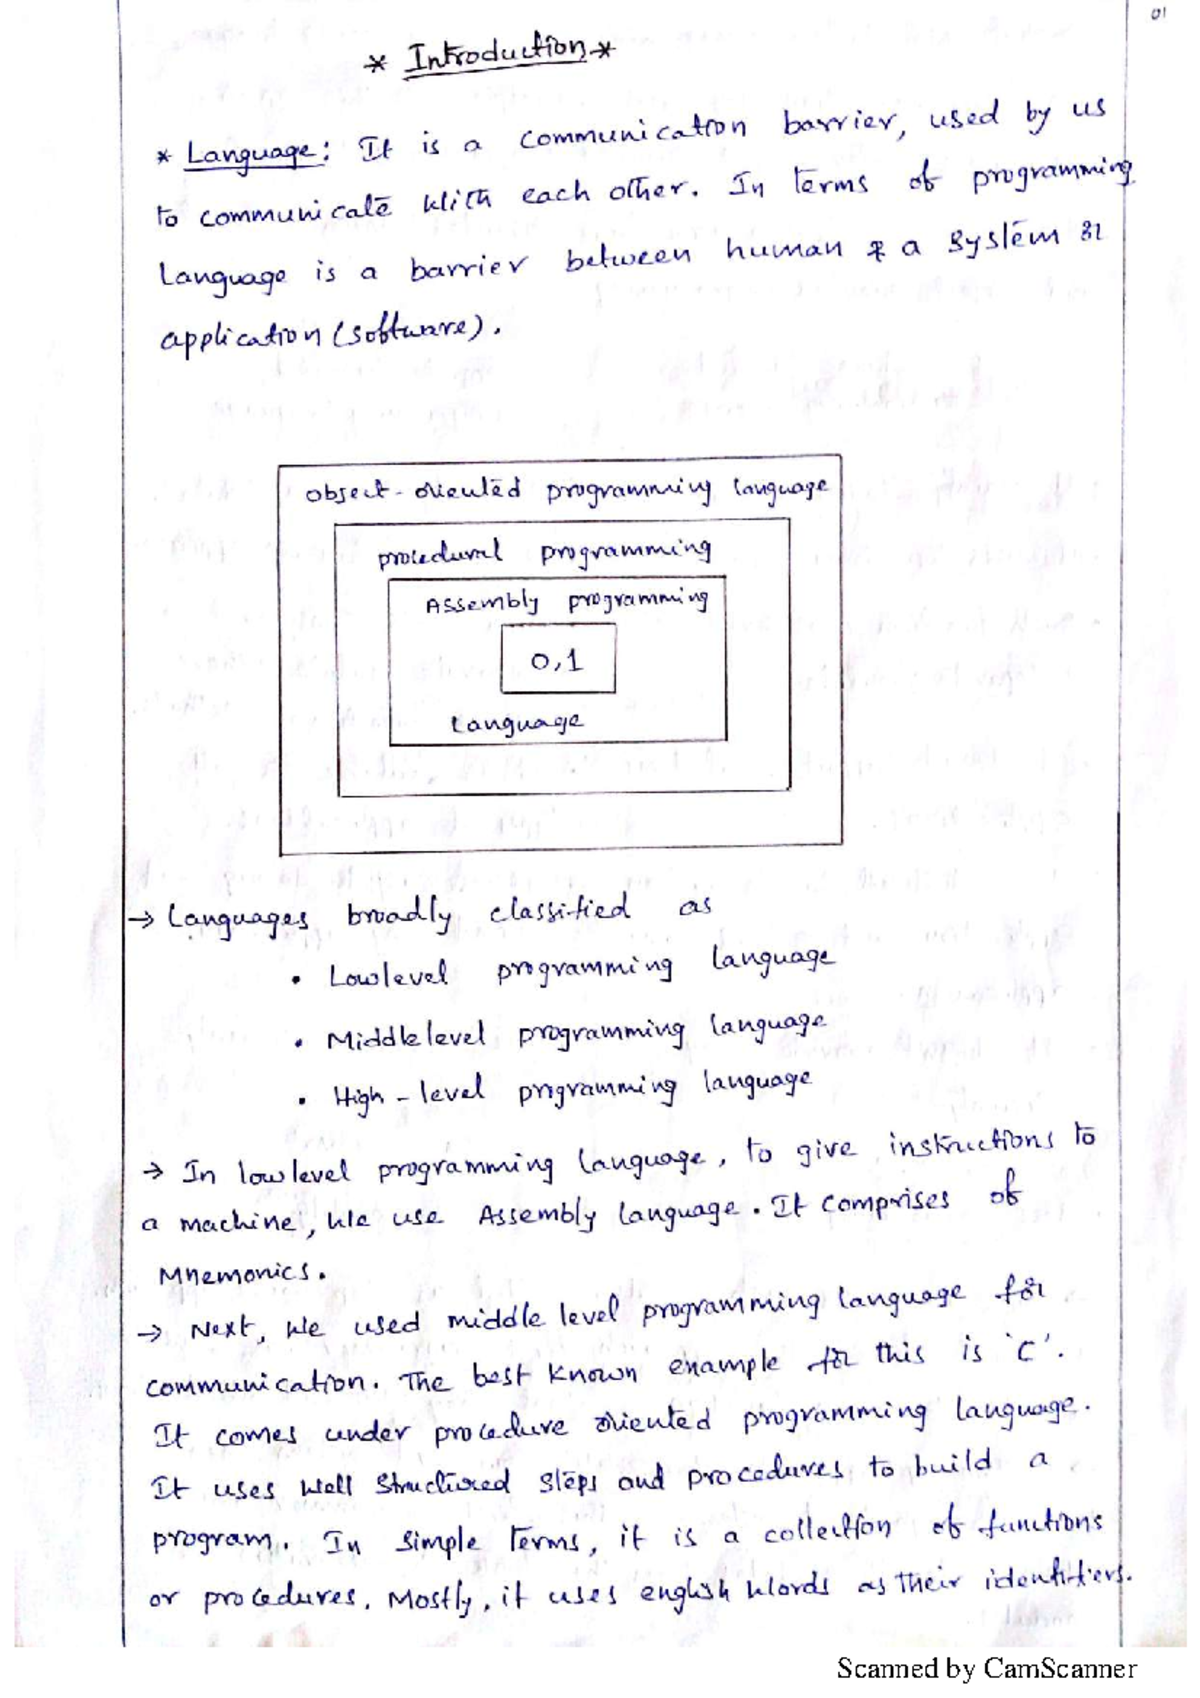 01
* Introduction *
* Language: It is a communication barrier, used by us
to communicate with each other. In terms of programming
language is a barrier between human & a system or
application (software).
Object-oriented programming language
procedural programming
Assembly programming
0,1
language
→ Languages broadly classified as
• Lowlevel programming language
• Middle level programming language
• High-level programming language
→ In lowlevel programming language, to give instructions to
a machine, we use Assembly language. It comprises of
Mnemonics.
→ Next, we used middle level programming language for
communication. The best known example for this is 'C'.
It comes under procedure oriented programming language.
It uses well structured steps and procedures to build a
program. In simple terms, it is a collection of functions
or procedures. Mostly, it uses english words as their identifiers.
Scanned by CamScanner